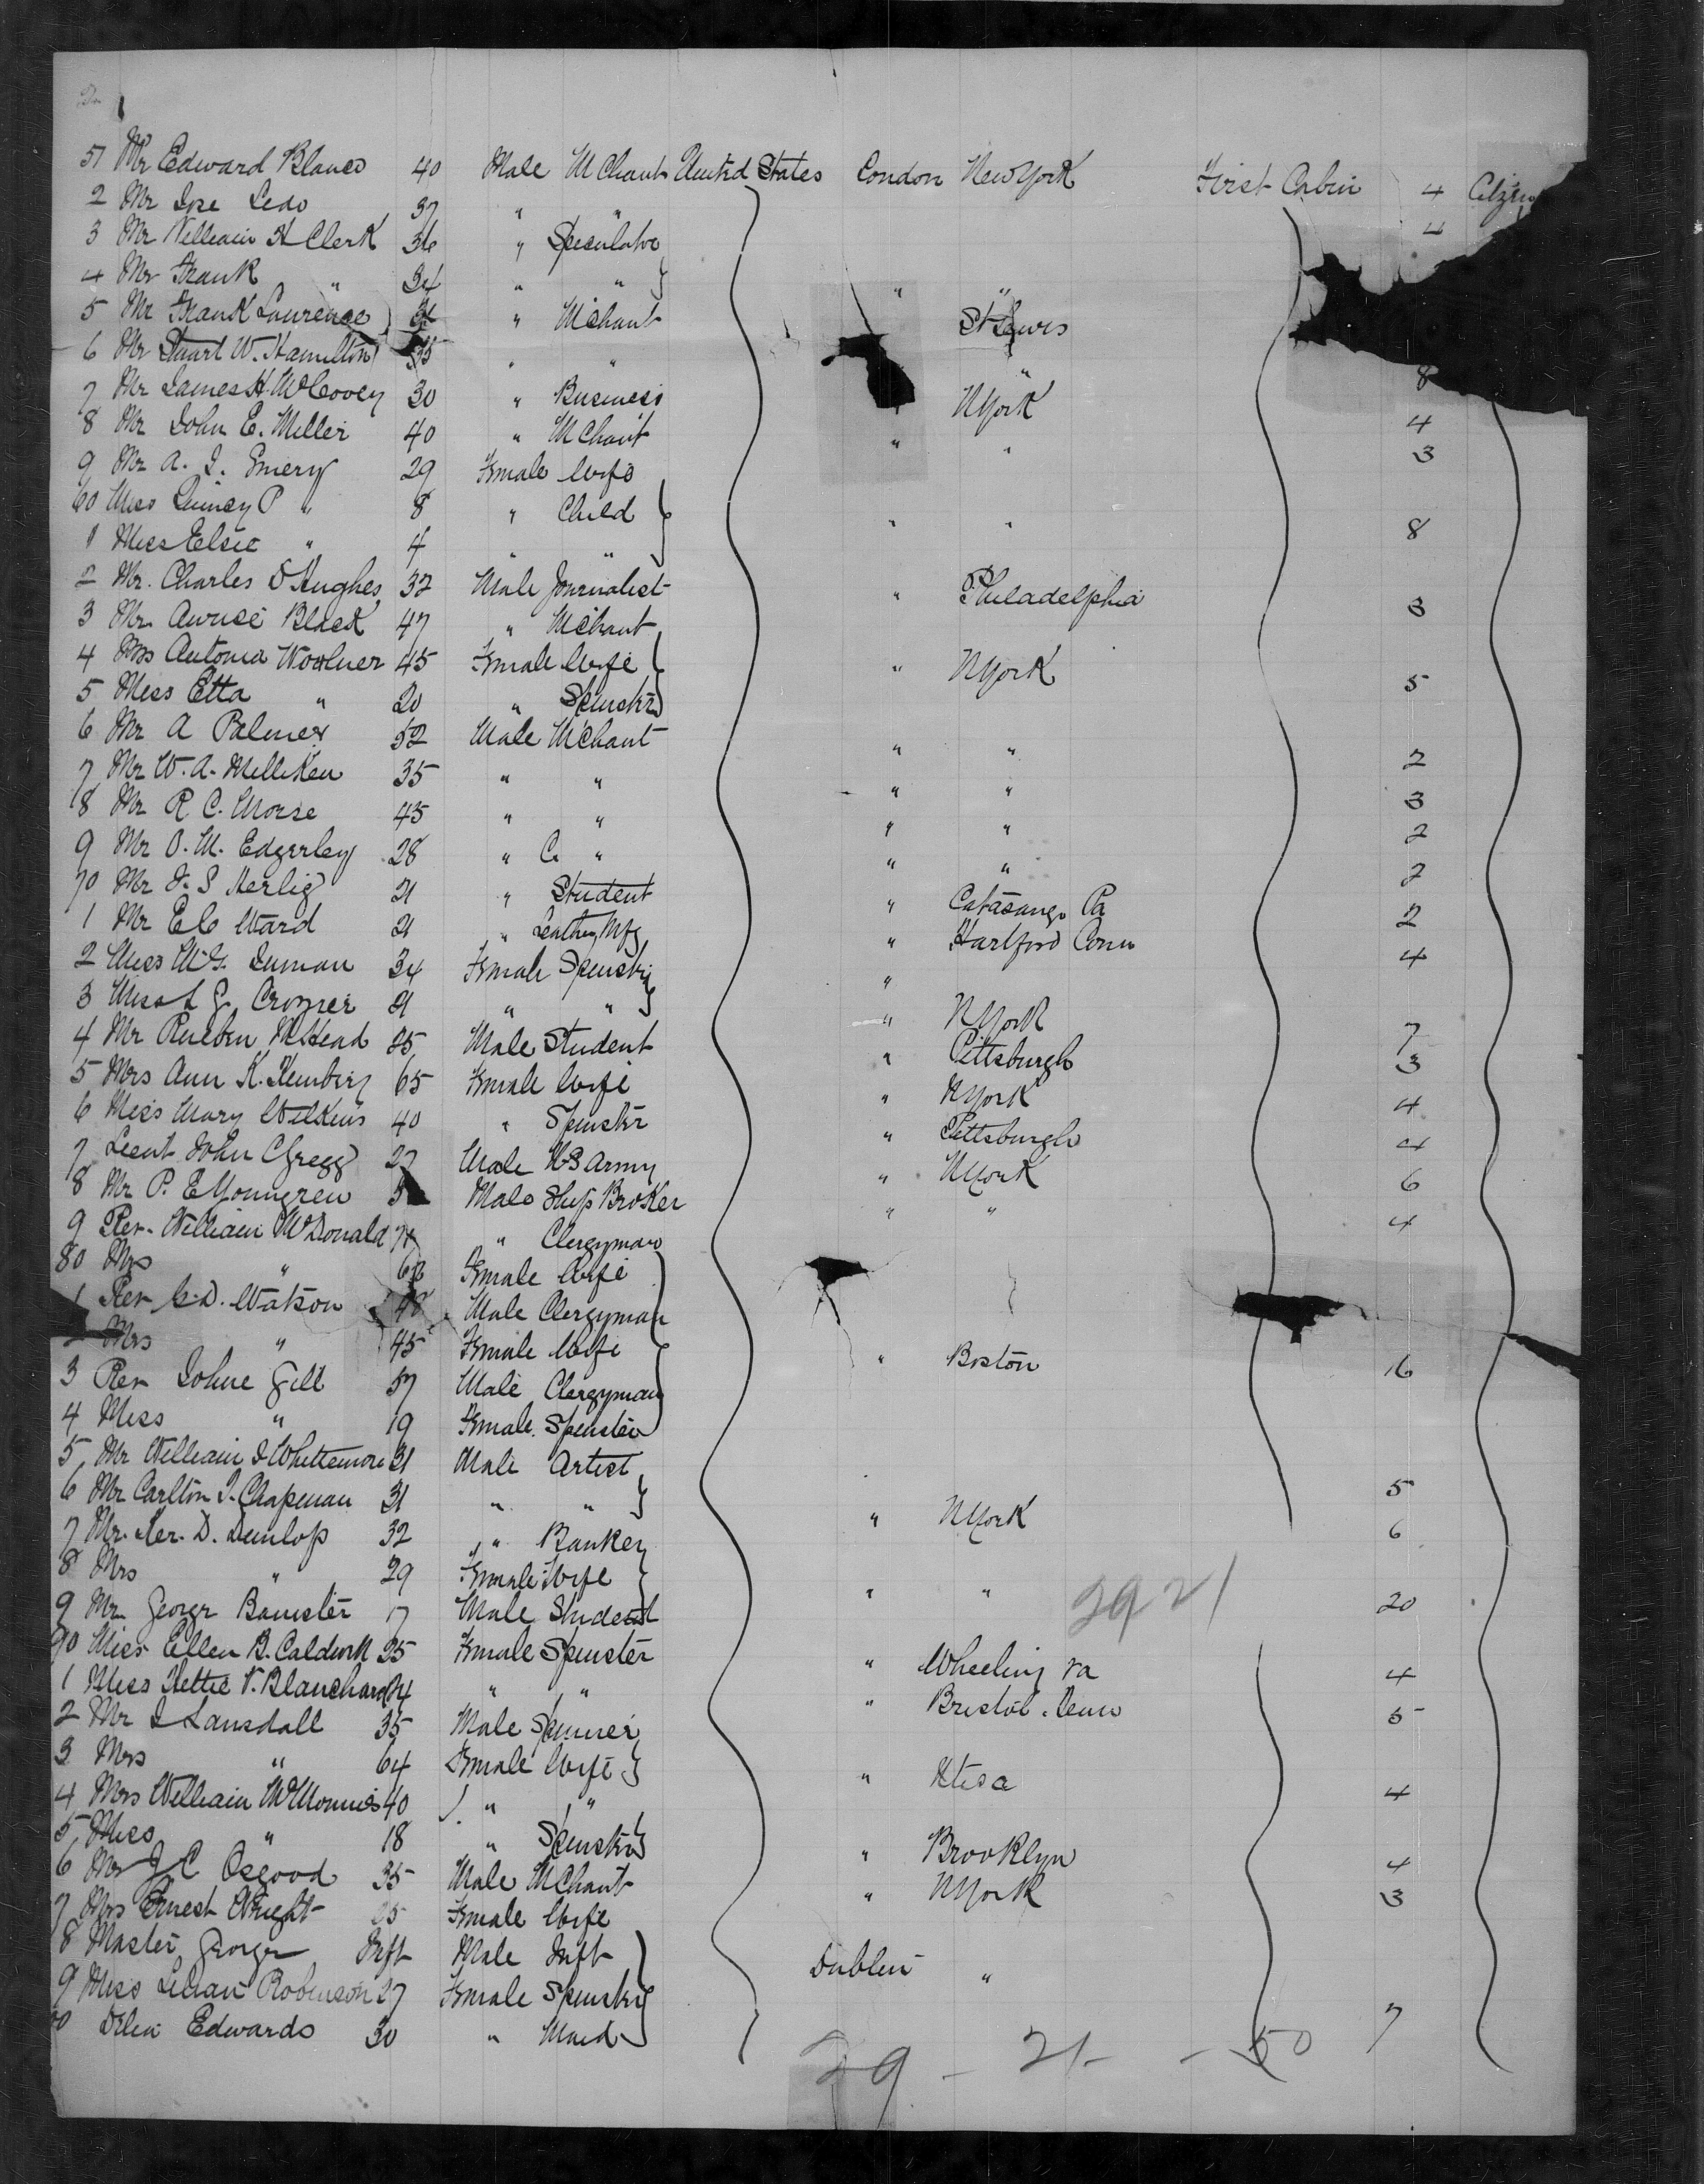 51 Mr Edward Blanco 40 Male MChant United States London New York First Cabin 4 Citizen
2 Mr Jose Ledo 37 " " 4
3 Mr William H Clerk 36 " Speculator
4 Mr Frank " 34 " " " "
5 Mr Frank Laurence " MChant St Lewis
6 Mr Stuart W. Hamilton 35 " " "
7 Mr James H. McCovey 30 " Business NYork 8
8 Mr John E. Miller 40 " MChant " " 4
9 Mr A. J. Emery 29 Female Wife 3
60 Miss Quincy P " 8 " Child " " 8
1 Miss Elsie " 4 " "
2 Mr. Charles D Hughes 32 Male Journalist " Philadelphia 3
3 Mr. Black 47 " MChant
4 Mrs Antonia Woolner 45 Female Wife " NYork 5
5 Miss Etta " 20 " Spinster
6 Mr A Palmer 52 Male MChant " " 2
7 Mr W. A. Milliken 35 " " " " 3
8 Mr R C. Morse 45 " " " " 2
9 Mr O. M. Edgerley 28 " C. " " " 2
70 Mr J. S Herlig 21 " Student " Catasauqa Pa 2
1 Mr E C Ward 21 " Leather Mfg " Hartford Conn 4
2 Miss M G. Inman 34 Female Spinster "
3 Miss L G. Crozier 21 " " " NYork 7
4 Mr Rueben M Head 25 Male Student " Pittsburgh 3
5 Mrs Ann K. 65 Female Wife " NYork 4
6 Miss Mary Wilkins 40 " Spinster " Pittsburgh 4
7 Lieut John C Gregg 27 Male US Army " NYork 6
8 Mr P. E Youngren Male Ship Broker " " 4
9 Rev. William McDonald 71 " Clergyman
80 Mrs " Female Wife
1 Rev G. D. Watson 48 Male Clergyman
2 Mrs " 45 Female Wife " Boston 16
3 Rev John Gill 57 Male Clergyman
4 Miss " 19 Female Spinster
5 Mr William J Whittemore 31 Male Artist
6 Mr Carlton T. Chapman 31 " " " NYork 5
7 Mr. D. Dunlop 32 " Banker 6
8 Mrs " 29 Female Wife " " 2921 20
9 Mr George Banister 17 Male Student
90 Miss Ellen B. Caldwell 25 Female Spinster " Wheeling Va 4
1 Miss Nettie V. Blanchard 24 " " " Bristol. Tenn 5
2 Mr J Lansdall 35 Male Spinner
3 Mrs " 64 Female Wife " Utica 4
4 Mrs William McMonnies 40 " "
5 Miss " 18 " Spinster " Brooklyn 4
6 Mr J C Osgood 35 Male MChant " NYork 3
7 Mrs Ernest Wright 25 Female Wife
8 Master George Inft Male Inft Dublin "
9 Miss Lilian Robinson 27 Female Spinster
00 Delia Edwards 30 " Maid 7
29 - 21 - 50